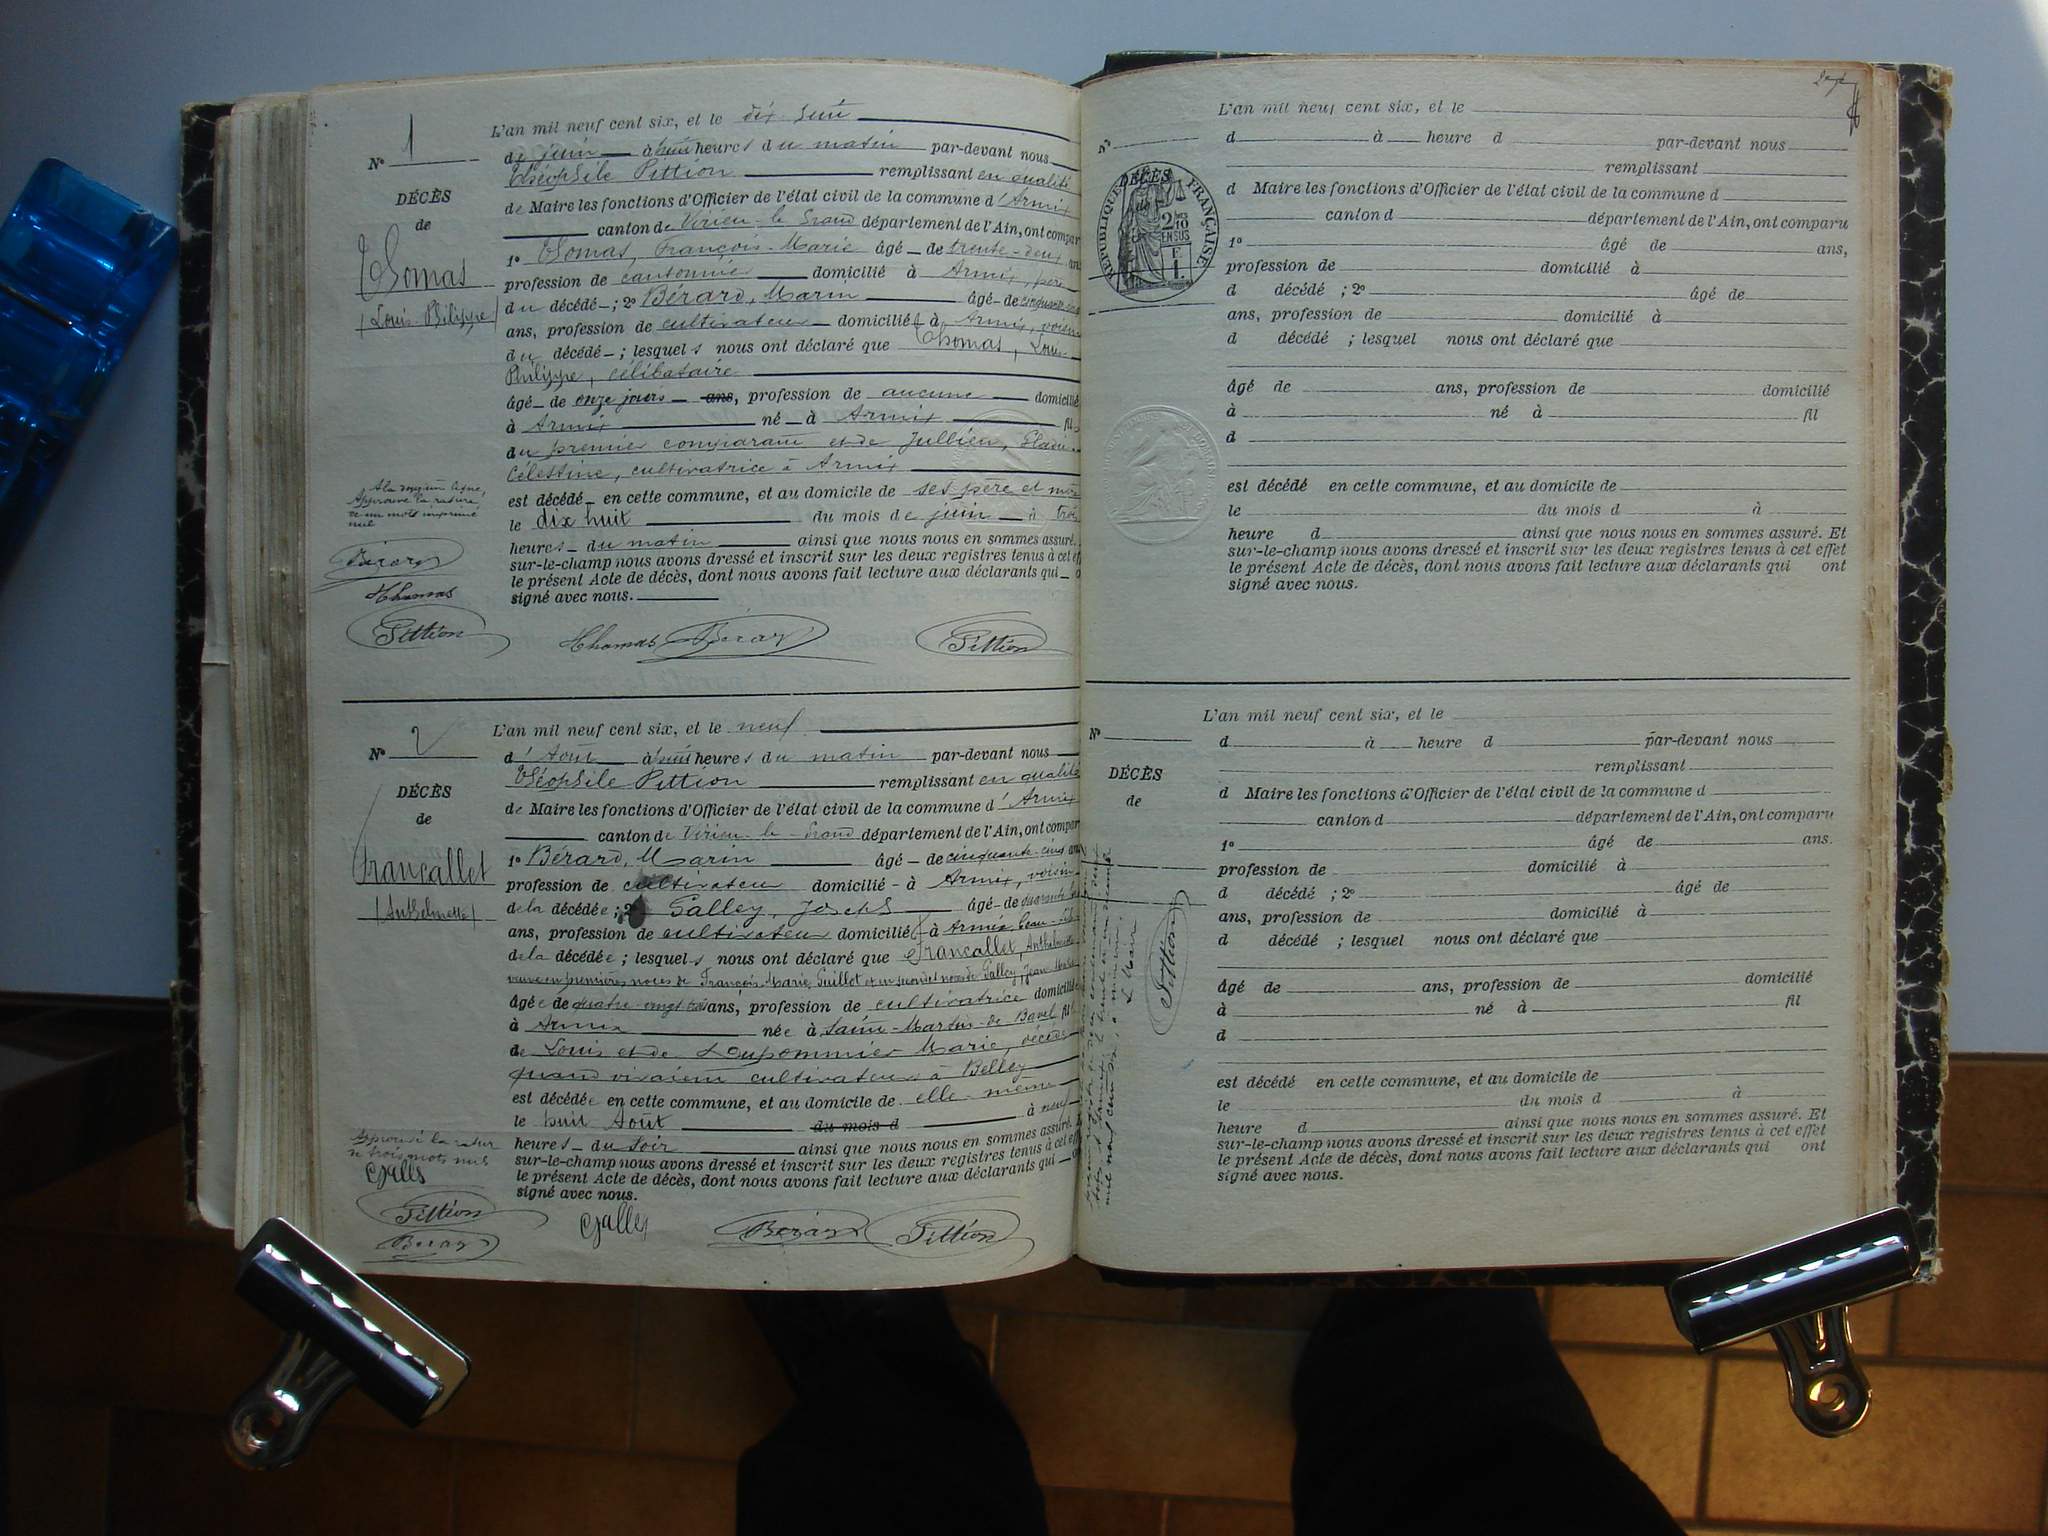 N° 1
DÉCÈS
de
Thomas
(Louis Philippe)
L'an mil neuf cent six, et le dix huit
de juin à huit heures du matin par-devant nous
Théophile Pittion remplissant en qualité
de Maire les fonctions d'Officier de l'état civil de la commune d'Armix
canton de Virieu-le-Grand département de l'Ain, ont compar
1° Thomas, François-Marie âgé de trente-deux ans
profession de cantonnier domicilié à Armix, père
du décédé ; 2° Bérard, Marin âgé de cinquante cinq
ans, profession de cultivateur domiciliés à Armix, voisin
du décédé ; lesquels nous ont déclaré que Thomas, Louis
Philippe, célibataire
âgé de onze jours ans, profession de aucune domicilié
à Armix né à Armix fils
du premier comparant et de Jullien,
Célestine, cultivatrice à Armix
est décédé en cette commune, et au domicile de ses père et mère
le dix huit du mois de juin à trois
heures du matin ainsi que nous nous en sommes assuré. Et
sur-le-champ nous avons dressé et inscrit sur les deux registres tenus à cet effet
le présent Acte de décès, dont nous avons fait lecture aux déclarants qui
signé avec nous.
A la douzième ligne,
Approuvé la rature
de un mots imprimé
nul
Bérard
Thomas
Pittion
Thomas Bérard Pittion
N° 2
DÉCÈS
de
Francallet
(Anthelmette)
L'an mil neuf cent six, et le neuf
d'Août à huit heures du matin par-devant nous
Théophile Pittion remplissant en qualité
de Maire les fonctions d'Officier de l'état civil de la commune d'Armix
canton de Virieu-le-Grand département de l'Ain, ont compar
1° Bérard, Marin âgé de cinquante-cinq ans
profession de cultivateur domicilié à Armix, voisin
de la décédée ; 2° Galley, Joseph âgé de quarante
ans, profession de cultivateur domiciliés à Armix, beau-fils
de la décédée ; lesquels nous ont déclaré que Francallet, Anthelmette
veuve en premières noces de François-Marie Guillet et en secondes noces de Galley, Jean
âgée de quatre-vingt ans, profession de cultivatrice domiciliée
à Armix née à Saint-Martin-de-Bavel fille
de Louis et de Marie, décédés
quand vivaient cultivateurs à Belley
est décédée en cette commune, et au domicile de elle-même
le huit Août du mois d à neuf
heures du soir ainsi que nous nous en sommes assuré. Et
sur-le-champ nous avons dressé et inscrit sur les deux registres tenus à cet effet
le présent Acte de décès, dont nous avons fait lecture aux déclarants qui
signé avec nous.
Approuvé la rature
de trois mots nuls
Galley
Pittion
Bérard
Galley Bérard Pittion
N°
DÉCÈS
de
RÉPUBLIQUE FRANÇAISE
2/10
EN SUS
L'an mil neuf cent six, et le
d à heure d par-devant nous
remplissant
d Maire les fonctions d'Officier de l'état civil de la commune d
canton d département de l'Ain, ont comparu
1° âgé de ans,
profession de domicilié à
d décédé ; 2° âgé de
ans, profession de domicilié à
d décédé ; lesquel nous ont déclaré que
âgé de ans, profession de domicilié
à né à fil
d
est décédé en cette commune, et au domicile de
le du mois d à
heure d ainsi que nous nous en sommes assuré. Et
sur-le-champ nous avons dressé et inscrit sur les deux registres tenus à cet effet
le présent Acte de décès, dont nous avons fait lecture aux déclarants qui ont
signé avec nous.
N°
DÉCÈS
de
L'an mil neuf cent six, et le
d à heure d par-devant nous
remplissant
d Maire les fonctions d'Officier de l'état civil de la commune d
canton d département de l'Ain, ont comparu
1° âgé de ans.
profession de domicilié à
d décédé ; 2° âgé de
ans, profession de domicilié à
d décédé ; lesquel nous ont déclaré que
âgé de ans, profession de domicilié
à né à fil
d
est décédé en cette commune, et au domicile de
le du mois d à
heure d ainsi que nous nous en sommes assuré. Et
sur-le-champ nous avons dressé et inscrit sur les deux registres tenus à cet effet
le présent Acte de décès, dont nous avons fait lecture aux déclarants qui ont
signé avec nous.
mil neuf cent six, à
Le Maire
Pittion